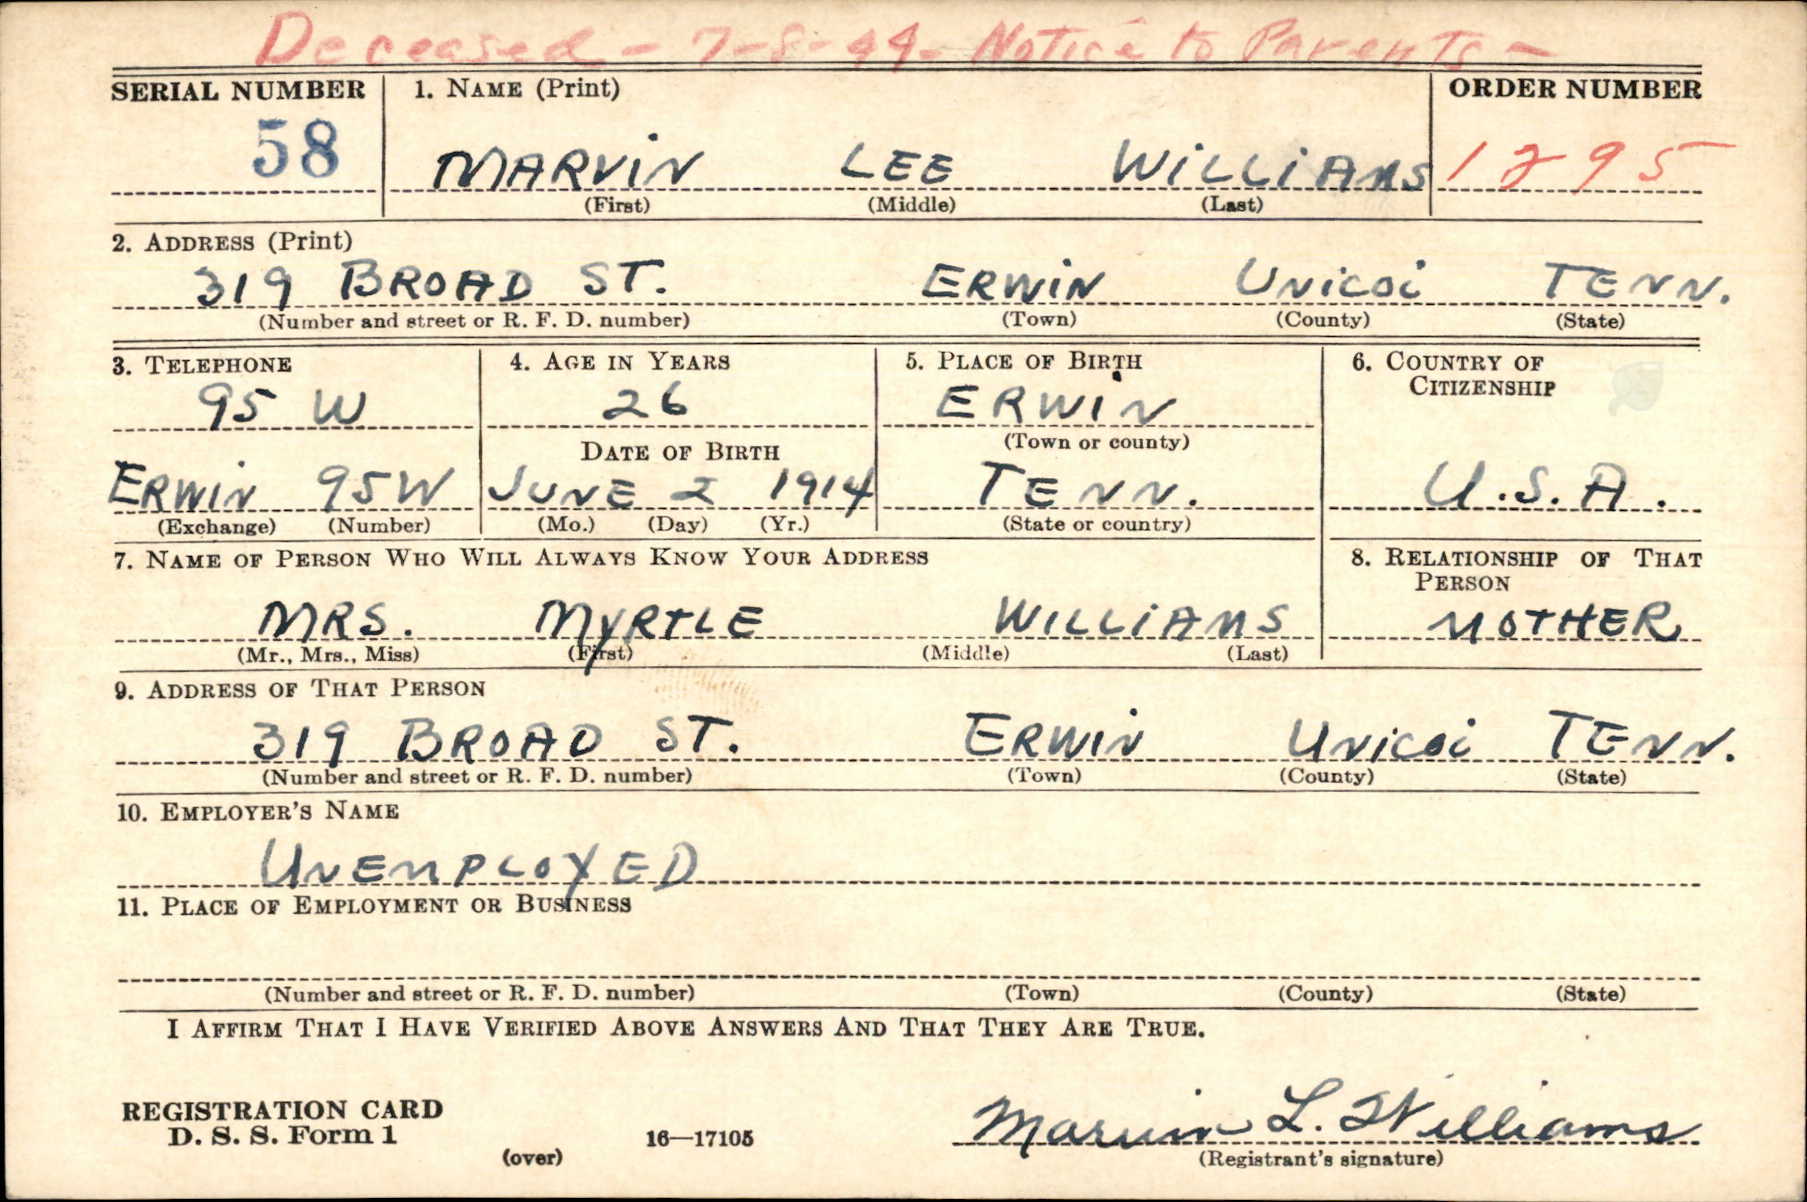 Deceased - 7-8-44- Notice to Parents -
SERIAL NUMBER 1. NAME (Print) ORDER NUMBER
58 MARVIN LEE WILLIAMS 1295
(First) (Middle) (Last)
2. ADDRESS (Print)
319 BROAD ST. ERWIN UNICOI TENN.
(Number and street or R. F. D. number) (Town) (County) (State)
3. TELEPHONE 4. AGE IN YEARS 5. PLACE OF BIRTH 6. COUNTRY OF
CITIZENSHIP
95 W 26 ERWIN
DATE OF BIRTH (Town or county)
ERWIN 95W JUNE 2 1914 TENN. U.S.A.
(Exchange) (Number) (Mo.) (Day) (Yr.) (State or country)
7. NAME OF PERSON WHO WILL ALWAYS KNOW YOUR ADDRESS 8. RELATIONSHIP OF THAT
PERSON
MRS. MYRTLE WILLIAMS MOTHER
(Mr., Mrs., Miss) (First) (Middle) (Last)
9. ADDRESS OF THAT PERSON
319 BROAD ST. ERWIN UNICOI TENN.
(Number and street or R. F. D. number) (Town) (County) (State)
10. EMPLOYER'S NAME
UNEMPLOYED
11. PLACE OF EMPLOYMENT OR BUSINESS
(Number and street or R. F. D. number) (Town) (County) (State)
I AFFIRM THAT I HAVE VERIFIED ABOVE ANSWERS AND THAT THEY ARE TRUE.
REGISTRATION CARD
D. S. S. Form 1 (over) 16—17105 Marvin L. Williams
(Registrant's signature)